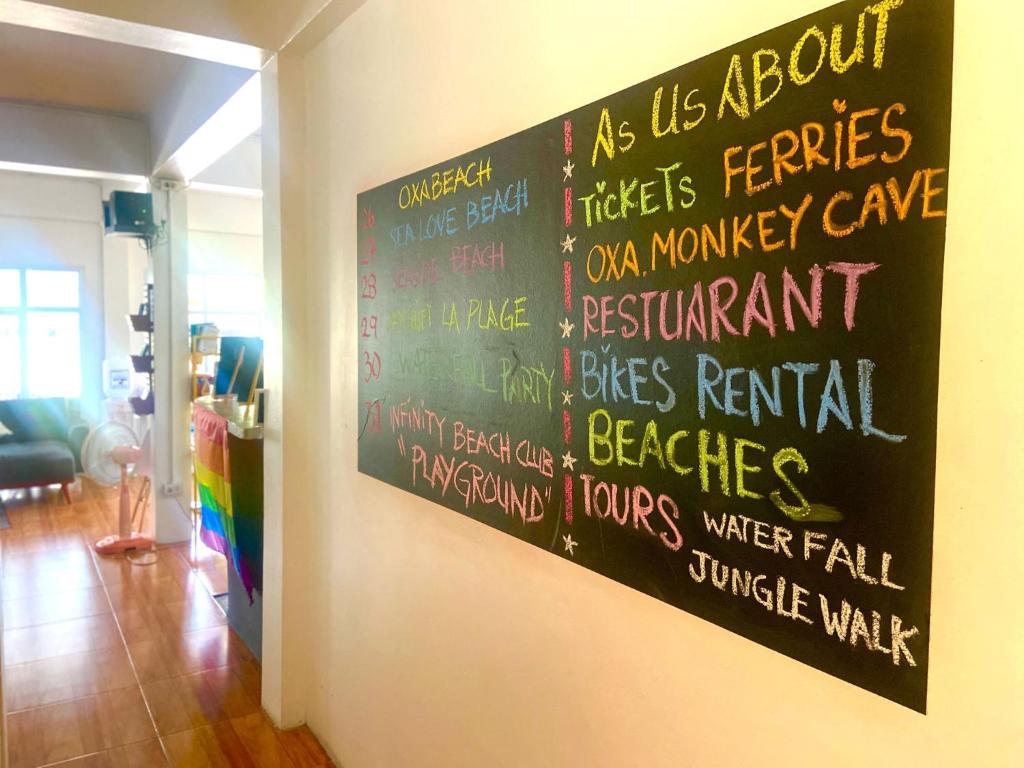 26 OXA BEACH
27 SEA LOVE BEACH
28 SEASIDE BEACH
29 LA PLAGE
30 WATER FALL PARTY
31 INFINITY BEACH CLUB
"PLAYGROUND"
AS US ABOUT
TICKETS FERRIES
OXA. MONKEY CAVE
RESTUARANT
BIKES RENTAL
BEACHES
TOURS WATER FALL
JUNGLE WALK